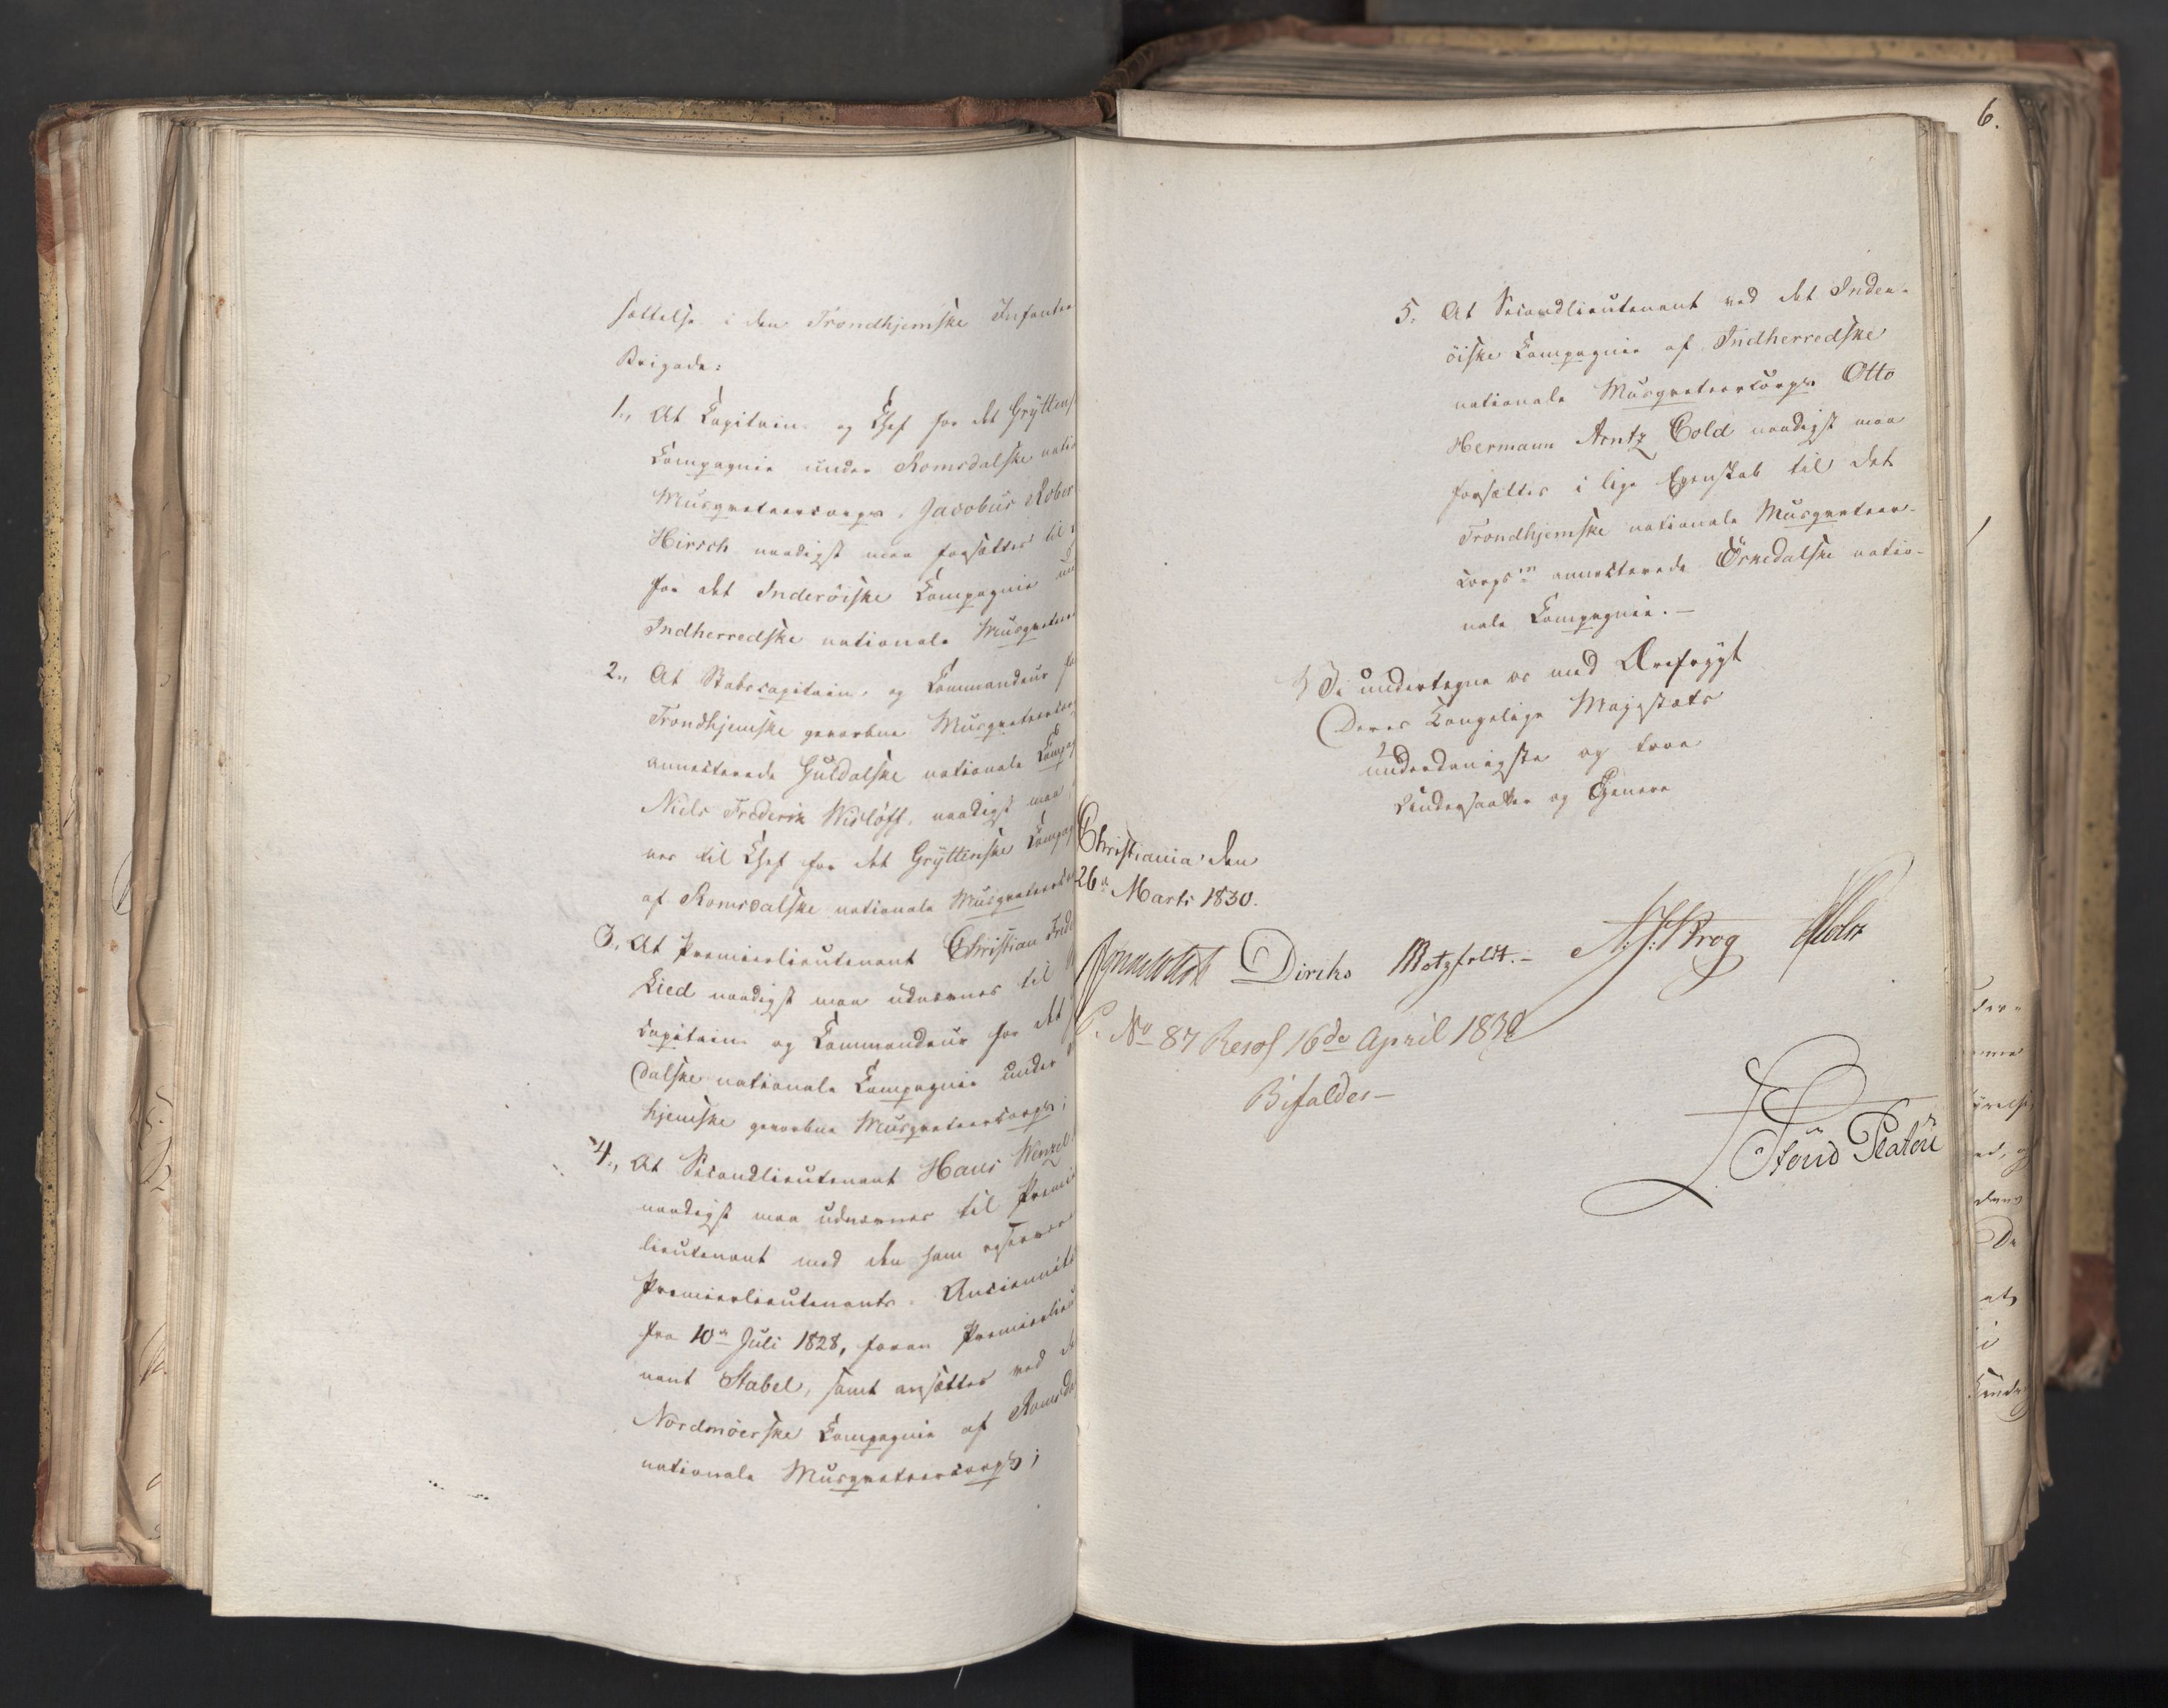 sættelse i den Trondhjemske Infanter
Brigade:
1., At Capitain og Chef for det Gryttens
Compagnie under Romsdalske natio
Musqueteercorps, Jacobus Rober
Hirsch naadigst maa forsættes til
for det Inderöiske Compagnie un
Indherredske nationale Musqueteer
2., At Stabscapitain og Commandeur fo
Trondhjemske gevorbne Musqueteercor
annecterede Guldalske nationale Comp
Niels Frederik Wisløff, naadigst maa
nes til Chef for det Gryttenske Compag
af Romsdalske nationale Musqueteerco
3. At Premierlieutenant Christian Frid
Lied naadigst maa udnævnes til
capitain og Commandeur for det
dalske nationale Compagnie under
hjemske gevorbne Musqueteercorps;
4., At Secondlieutenant Hans Wenzel
naadigst maa udnævnes til Premier
lieutenant med den ham
Premierlieutenants Anciennite
fra 10de Juli 1828, foran Premierlieu
nant Stabel, samt ansættes ved d
Nordmöerske Compagnie af Romsda
nationale Musqueteercorps;
6.
5. At Secondlieutenant ved det Inder-
öiske Compagnie af Indherredske
nationale Musqueteercorps Otto
Hermann Arntz Cold naadigst maa
forsættes i lige Egenskab til det
Trondhjemske nationale Musqueteer-
corps annecterede Örkedalske natio-
nale Compagnie.-
Vi undertegne os med Ærefrygt
Deres Kongelige Majestæts
underdanigste og troe
Undersaatter og Tjenere
Christiania den
26de Marts 1830.
Diriks Motzfeldt.- N: J: Krog Holst
P. No 87 Resol 16de April 1830
Bifaldes-
Stoud Platou